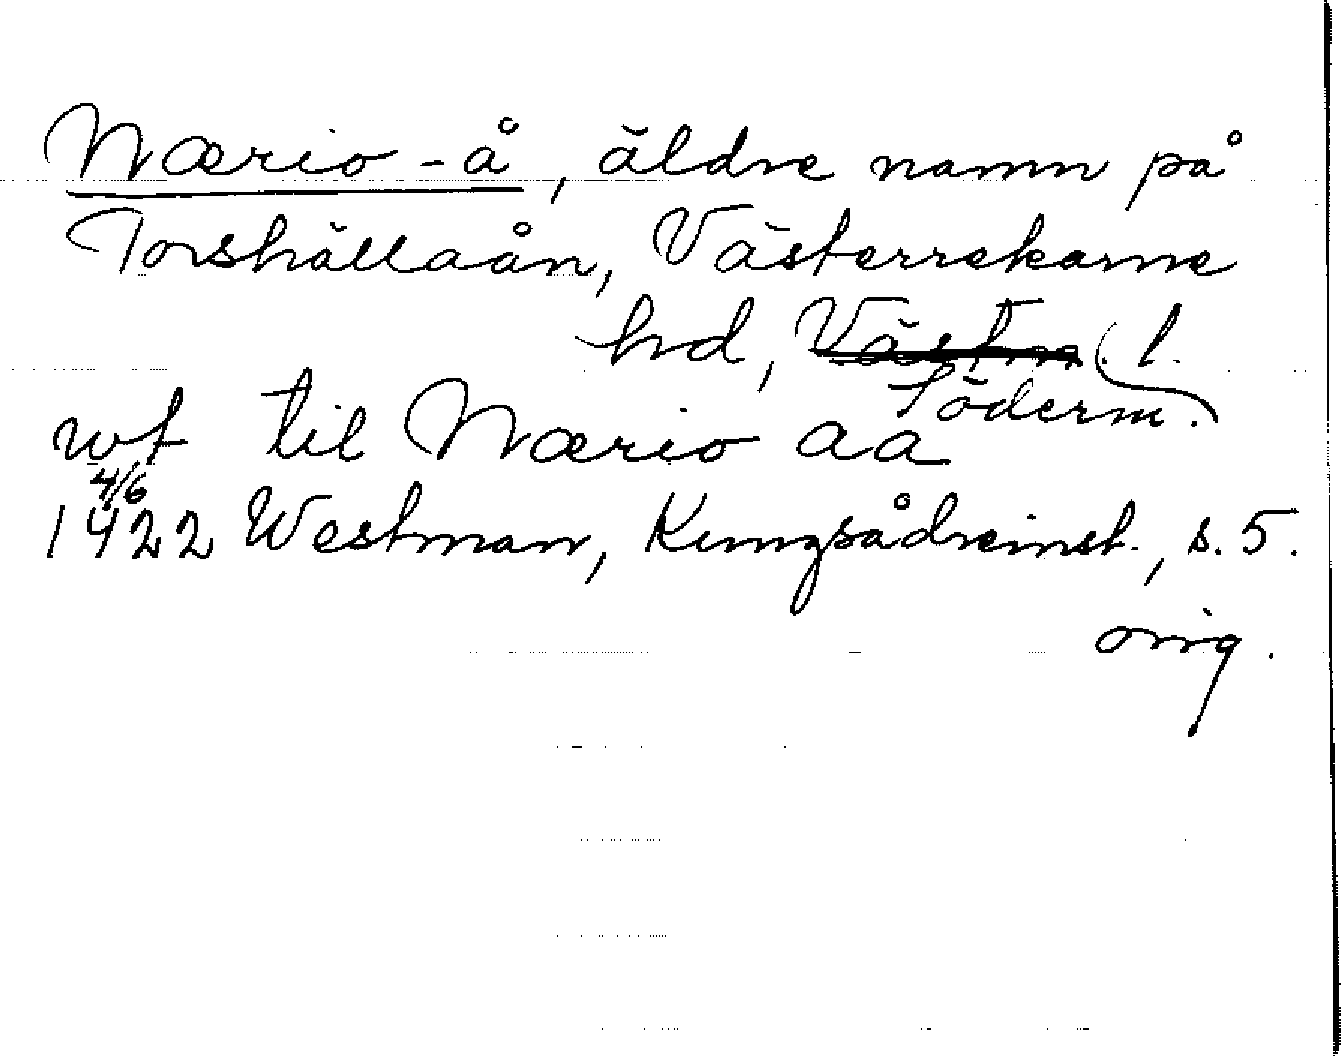 Nærio-å, äldre namn på
Torshällaån, Västerrekarne
hd, Västm. l.
Söderm.
wt til Nærio aa
4/6
1422 Westman, Kungsådreinst., s. 5.
orig.